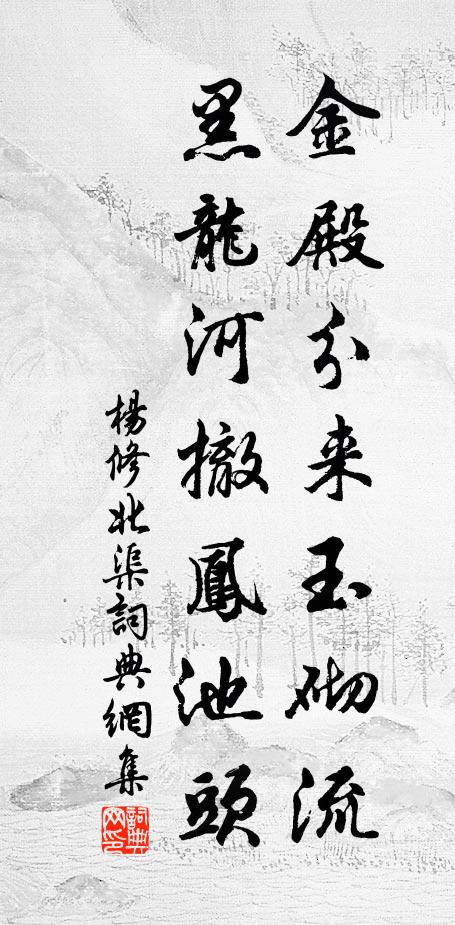 金殿分来玉砌流
黑龍河撤鳳池頭
楊修北渠詞典網集
詞典网印